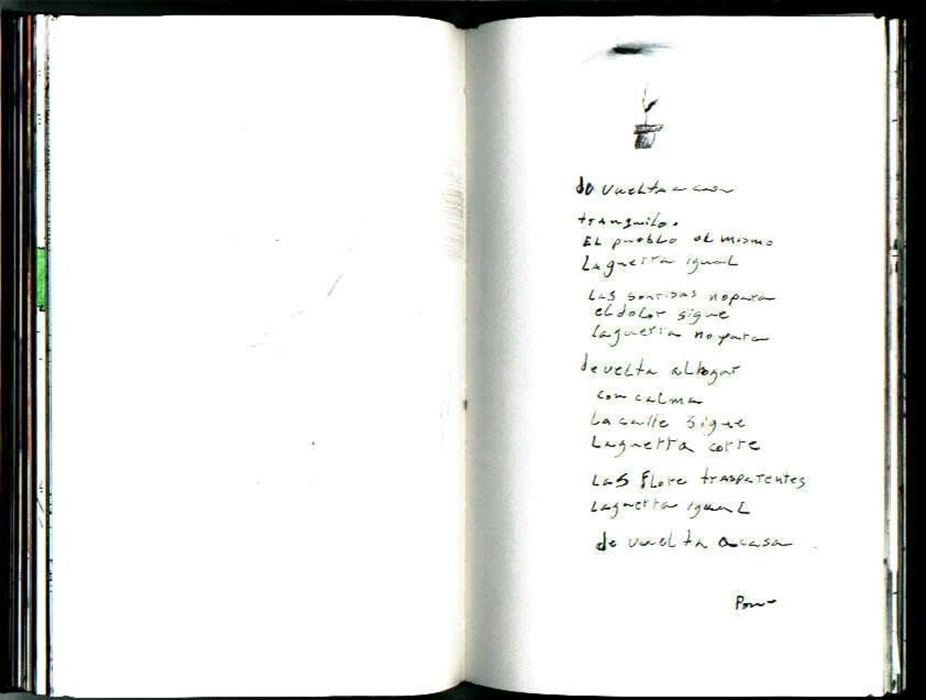 de vuelta a casa
tranquilo.
EL pueblo el mismo
La guerra igual
Las sonrisas no paran
el dolor sigue
La guerra no para
de vuelta al hogar
con calma
La calle sigue
La guerra corre
Las Flore trasparentes
La guerra igual
de vuelta a casa